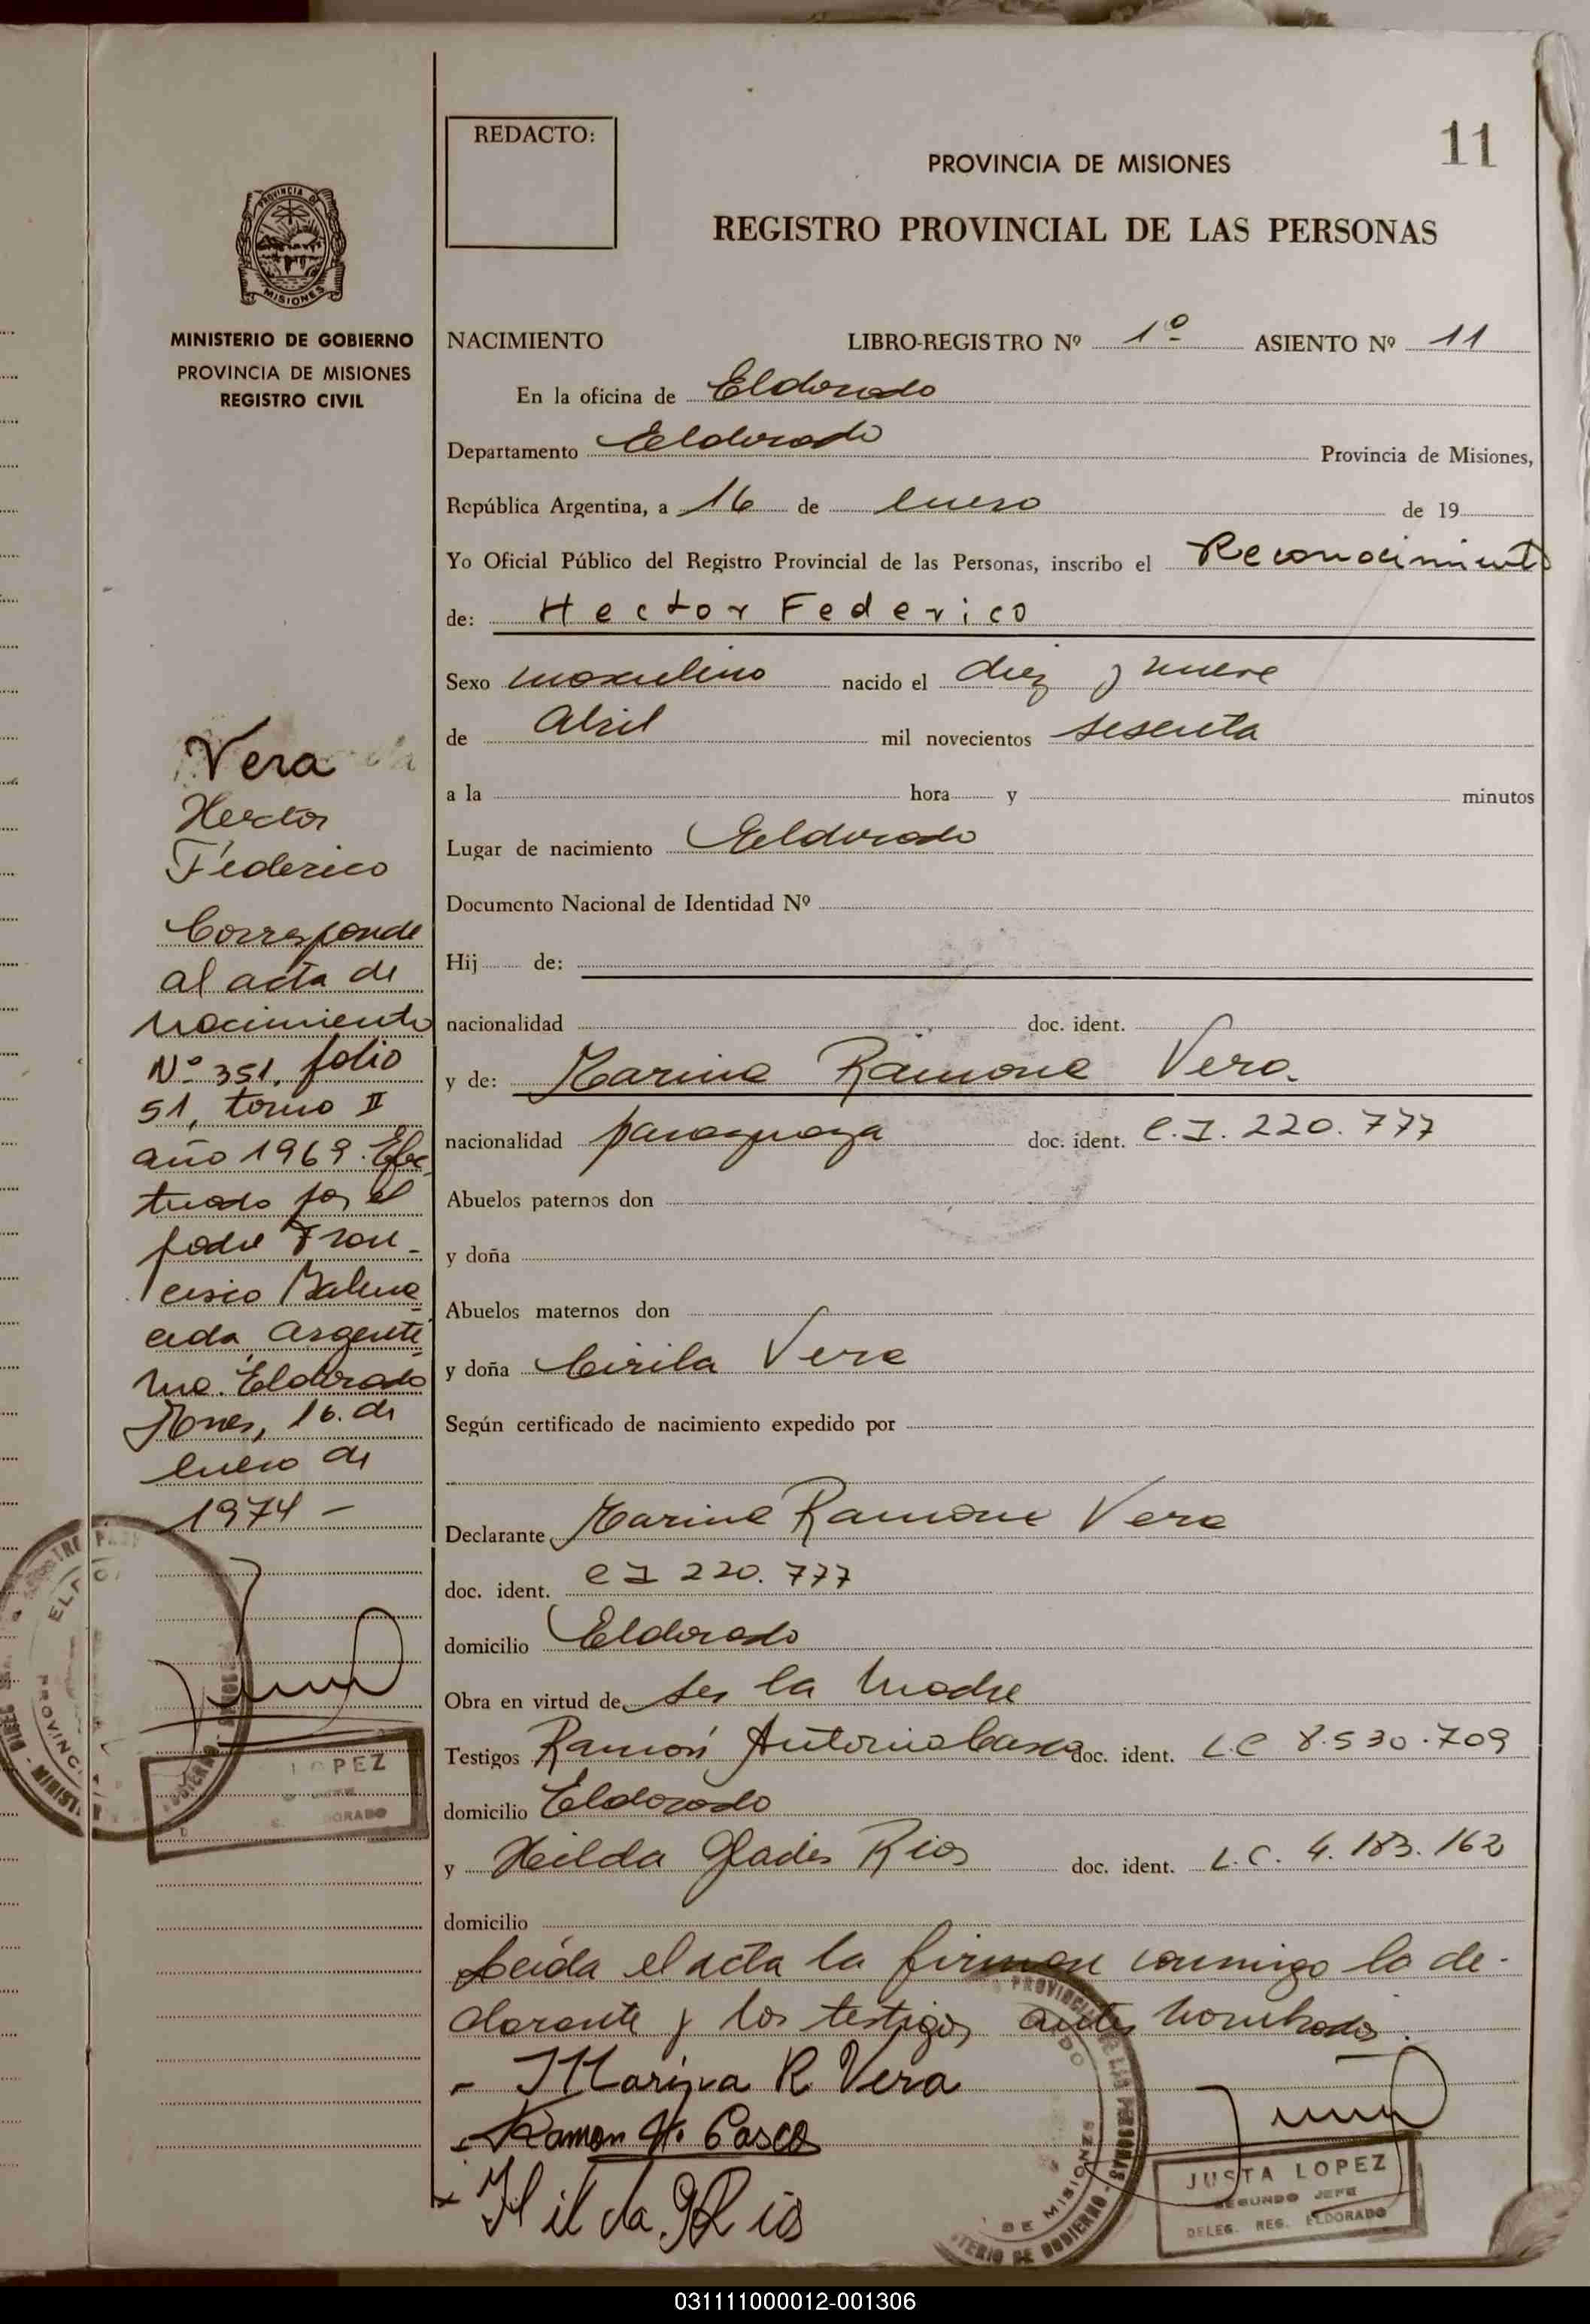 REDACTO:
11
PROVINCIA DE MISIONES
REGISTRO PROVINCIAL DE LAS PERSONAS
PROVINCIA DE
MISIONES
MINISTERIO DE GOBIERNO
PROVINCIA DE MISIONES
REGISTRO CIVIL
NACIMIENTO LIBRO-REGISTRO Nº 1º ASIENTO Nº 11
En la oficina de Eldorado
Departamento Eldorado Provincia de Misiones,
República Argentina, a 16 de enero de 19
Yo Oficial Público del Registro Provincial de las Personas, inscribo el Reconocimiento
de: Hector Federico
Sexo masculino nacido el diez y nueve
de Abril mil novecientos sesenta
a la hora y minutos
Lugar de nacimiento Eldorado
Documento Nacional de Identidad Nº
Hij de:
nacionalidad doc. ident.
y de: Marina Ramona Vera
nacionalidad paraguaya doc. ident. C.I. 220.777
Abuelos paternos don
y doña
Abuelos maternos don
y doña Cirila Vera
Según certificado de nacimiento expedido por
Declarante Marina Ramona Vera
doc. ident. C I 220.777
domicilio Eldorado
Obra en virtud de ser la madre
Testigos Ramón Antonio Casco doc. ident. L.E 8.530.709
domicilio Eldorado
y Hilda Gladis Rios doc. ident. L.C. 4.183.162
domicilio
Leida el acta la firman conmigo la de-
clarante y los testigos antes nombrados.
- Marina R. Vera
- Ramon A. Casco
Hilda G. Rios
JUSTA LOPEZ
SEGUNDO JEFE
DELEG. REG. ELDORADO
Vera
Hector
Federico
Corresponde
al acta de
nacimiento
Nº 351, folio
51, tomo II
año 1969. Efec
tuado por el
padre Fran-
cisco
Argenti
na. Eldorado
Mnes, 16 de
enero de
1974 -
LOPEZ
DORADO
PROVINCIAL DE LAS PERSONAS
DE MISIONES
DE GOBIERNO
031111000012-001306